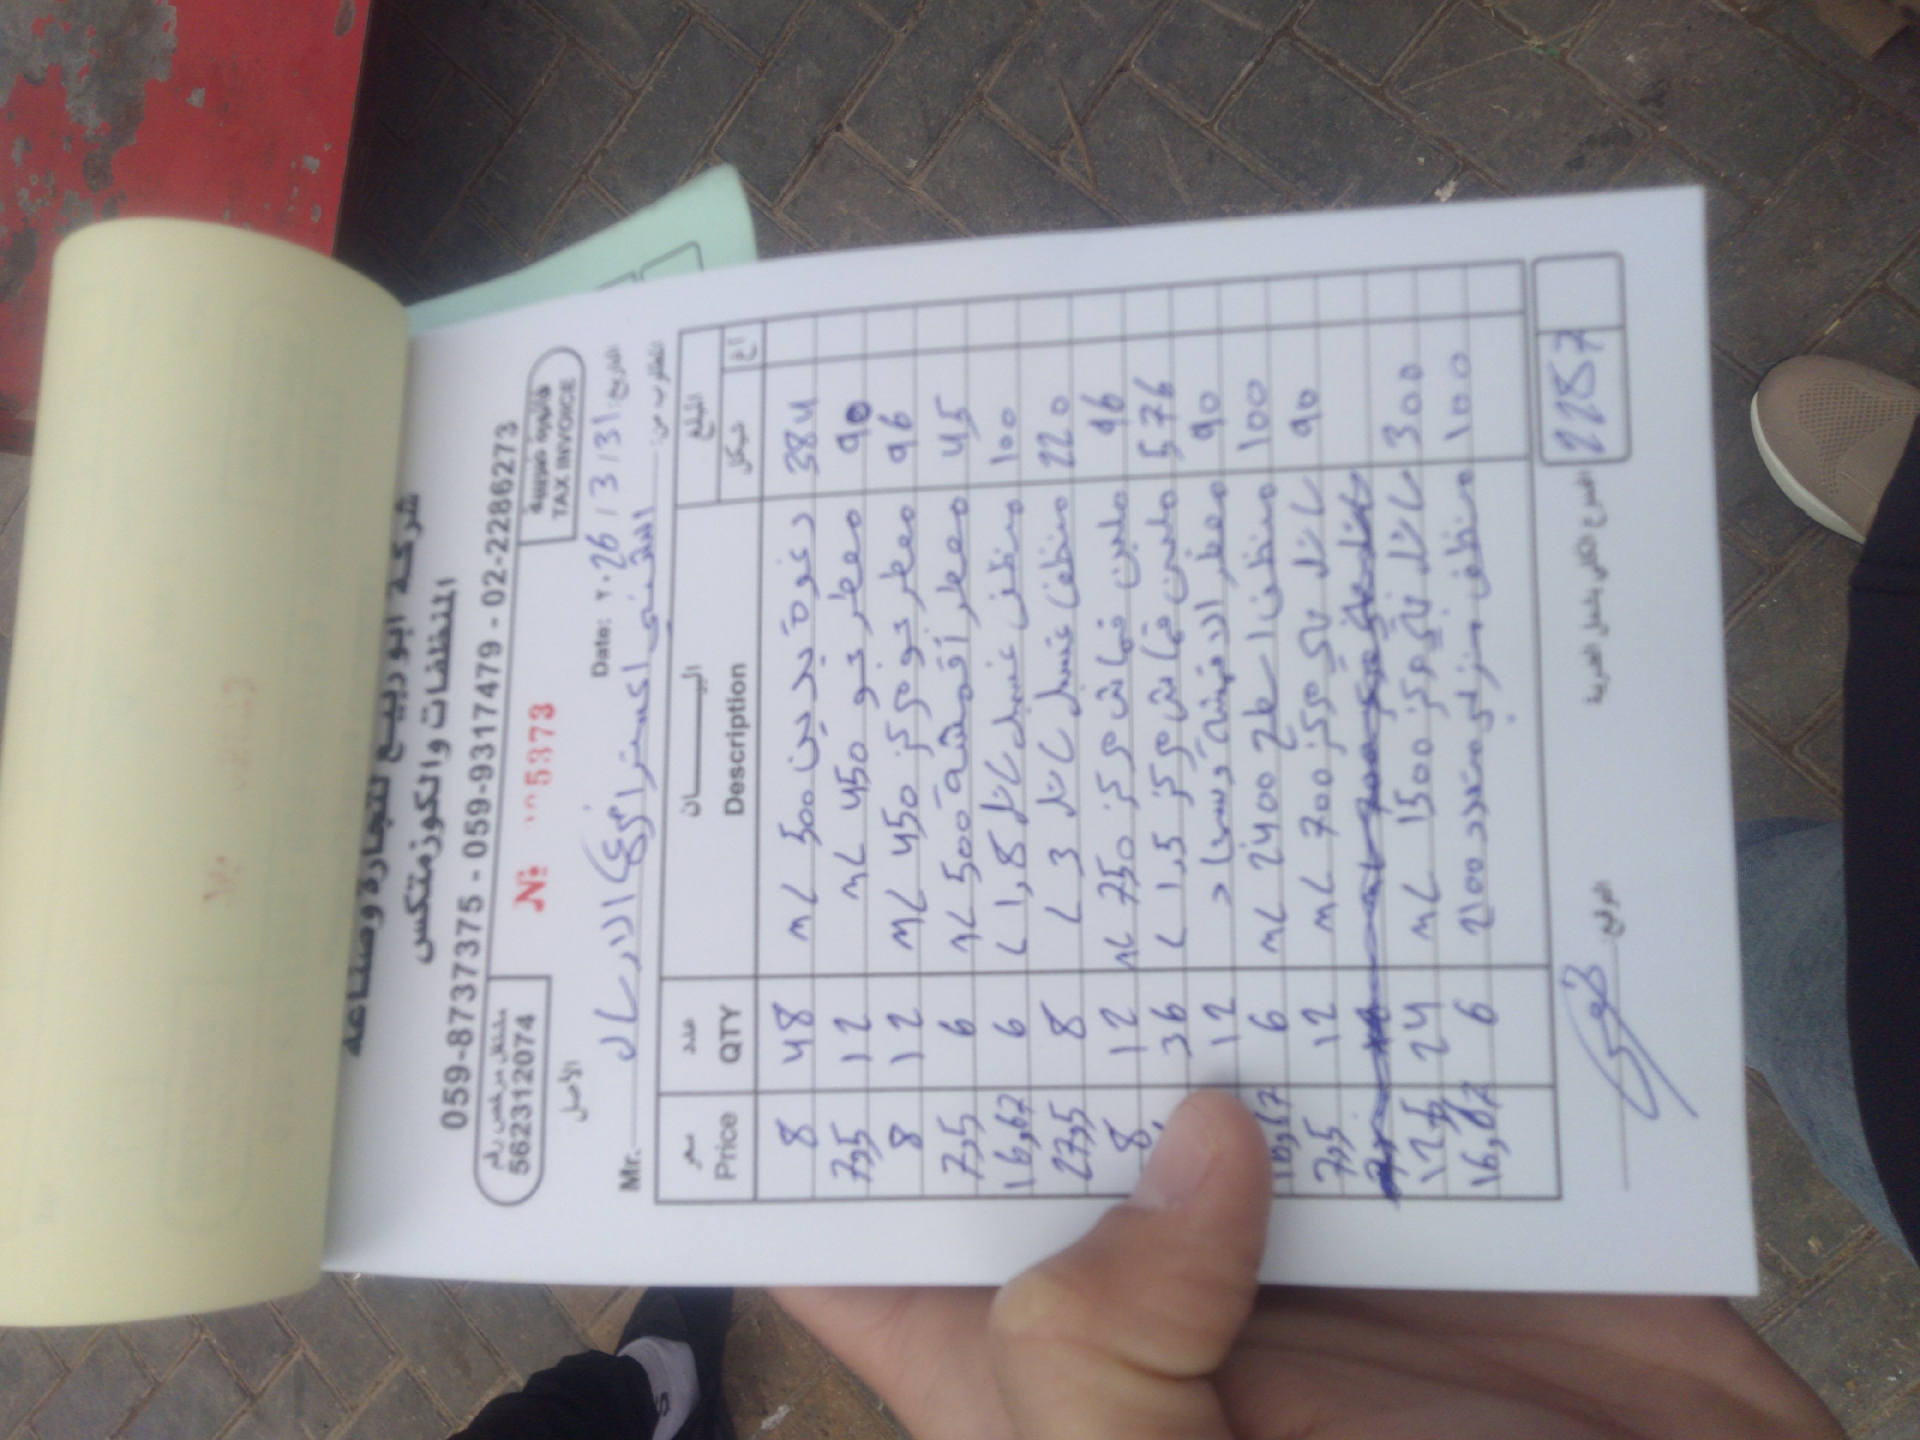 شركة ابو ربيع لتجارة وصناعة
المنظفات والكوزمتكس
059-8737375 - 059-9317479 - 02-2286273
مشتغل مرخص رقم
562312074
№ 5373
فاتورة ضريبية
TAX INVOICE
الأصل
Date: ٢٠26 / 3 / 31 التاريخ:
Mr. اكسترا الارسال المطلوب من:
سعر عدد البيـــــان المبلغ
Price QTY Description شيكل أغ
8 48 500 mL 384
7,5 12 معطر 450 mL 90
8 12 معطر 450 mL 96
7,5 6 معطر أقمشة 500 mL 45
16,67 6 منظف غسيل سائل 1,8 L 100
27,5 8 منظف غسيل سائل 3 L 220
8 12 ملين قماش مركز 750 mL 96
36 ملين قماش مركز 1,5 L 576
12 معطر 90
16,67 6 منظف 2400 mL 100
7,5 12 سائل مركز 700 mL 90
12,5 24 سائل مركز 1500 mL 300
16,67 6 منظف منزلي متعدد 2100 100
المجموع الكلي يشمل الضريبة 2287
التوقيع